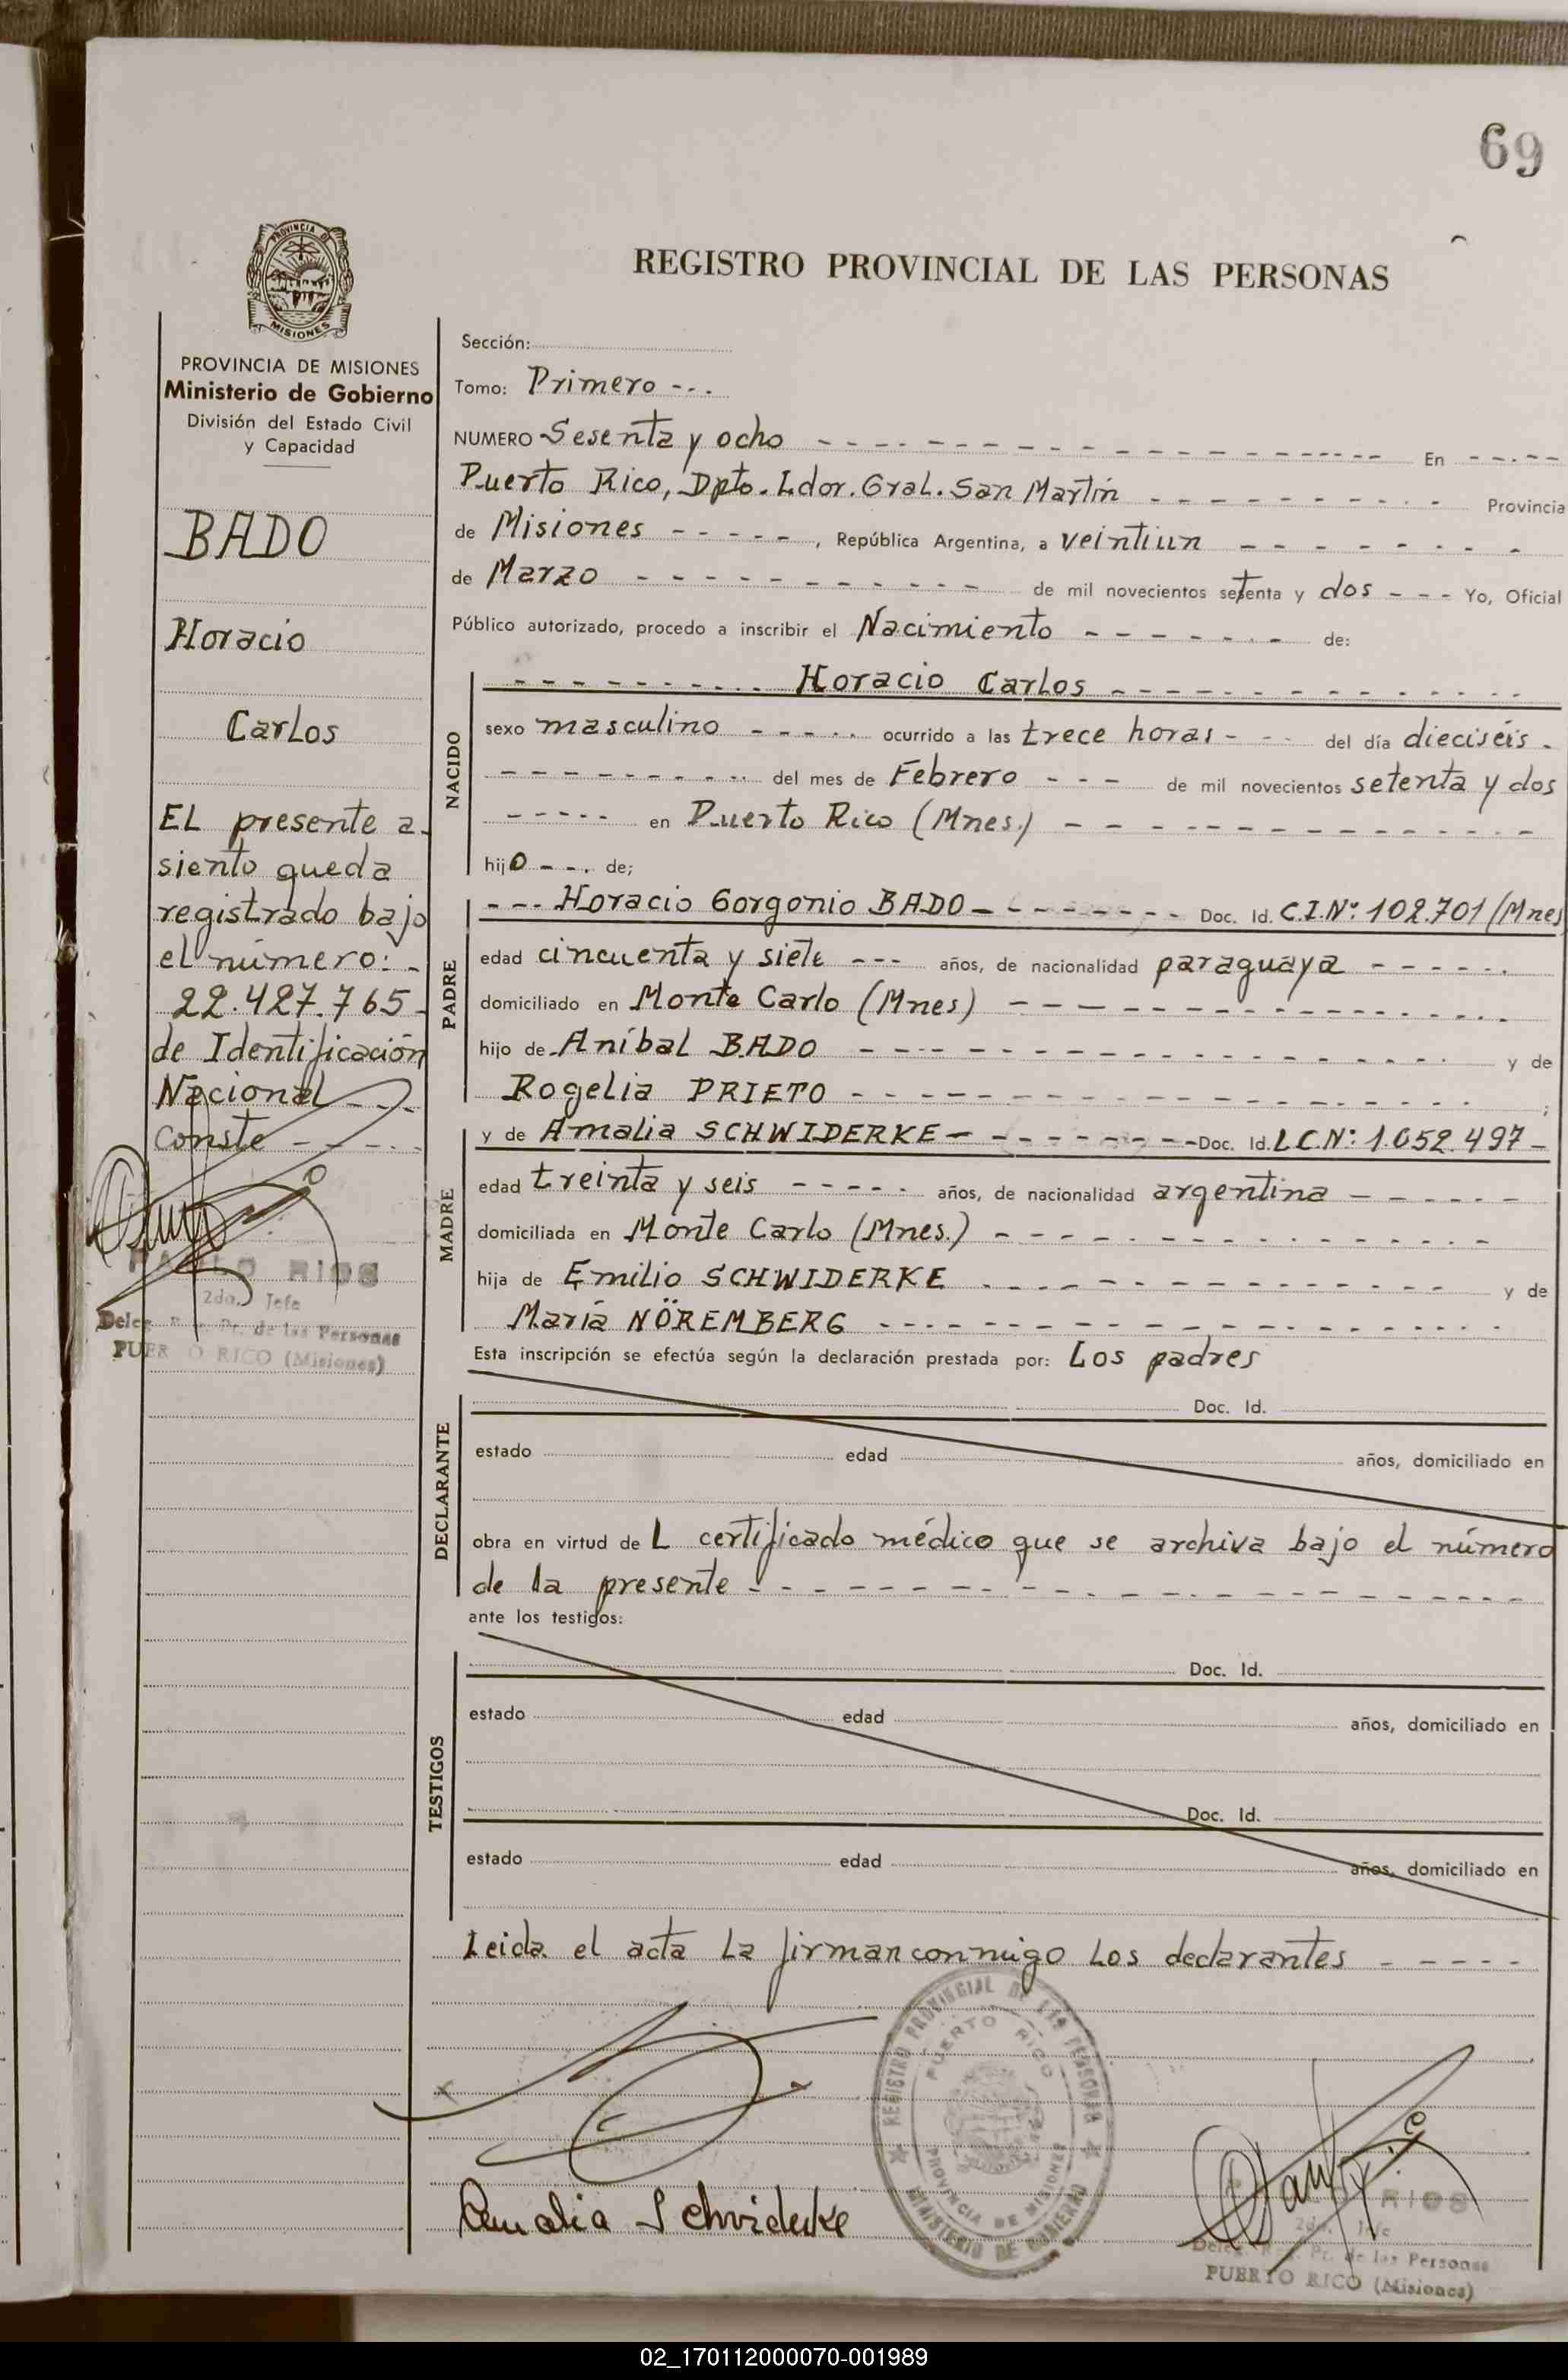 69
PROVINCIA DE
MISIONES
REGISTRO PROVINCIAL DE LAS PERSONAS
PROVINCIA DE MISIONES
Ministerio de Gobierno
División del Estado Civil
y Capacidad
BADO
Horacio
Carlos
EL presente a-
siento queda
registrado bajo
el número: -
22.427.765-
de Identificación
Nacional ---
Conste -----
PABLO RIOS
2do. Jefe
Deleg. Pr. de las Personas
PUERTO RICO (Misiones)
Sección:
Tomo: Primero ---
NUMERO Sesenta y ocho ---------- En -----
Puerto Rico, Dpto. Ldor. Gral. San Martín ---------- Provincia
de Misiones -----, República Argentina, a veintiun --------
de Marzo ---------- de mil novecientos setenta y dos --- Yo, Oficial
Público autorizado, procedo a inscribir el Nacimiento -------- de:
NACIDO
---------- Horacio Carlos ----------
sexo masculino ----- ocurrido a las trece horas --- del día dieciséis -
---------- del mes de Febrero --- de mil novecientos setenta y dos
----- en Puerto Rico (Mnes.) ----------
hijo --- de;
PADRE
--- Horacio Gorgonio BADO -------- Doc. Id. C.I.Nº: 102.701 (Mnes
edad cincuenta y siete --- años, de nacionalidad paraguaya ------
domiciliado en Monte Carlo (Mnes) ----------
hijo de Aníbal BADO ---------- y de
Rogelia PRIETO ---------- ;
MADRE
y de Amalia SCHWIDERKE -------- Doc. Id. L.C.Nº: 1.052.497-
edad treinta y seis ----- años, de nacionalidad argentina ------
domiciliada en Monte Carlo (Mnes.) ----------
hija de Emilio SCHWIDERKE ---------- y de
María NÖREMBERG ----------
Esta inscripción se efectúa según la declaración prestada por: Los padres
DECLARANTE
Doc. Id.
estado edad años, domiciliado en
obra en virtud de L certificado médico que se archiva bajo el número
de la presente ----------
ante los testigos:
TESTIGOS
Doc. Id.
estado edad años, domiciliado en
Doc. Id.
estado edad años, domiciliado en
Leida el acta La firman conmigo Los declarantes -----
REGISTRO PROVINCIAL DE LAS PERSONAS
PUERTO RICO
PROVINCIA DE MISIONES
MINISTERIO DE GOBIERNO
Amalia Schviderke
RIOS
2do. Jefe
Deleg. Pr. de las Personas
PUERTO RICO (Misiones)
02_170112000070-001989